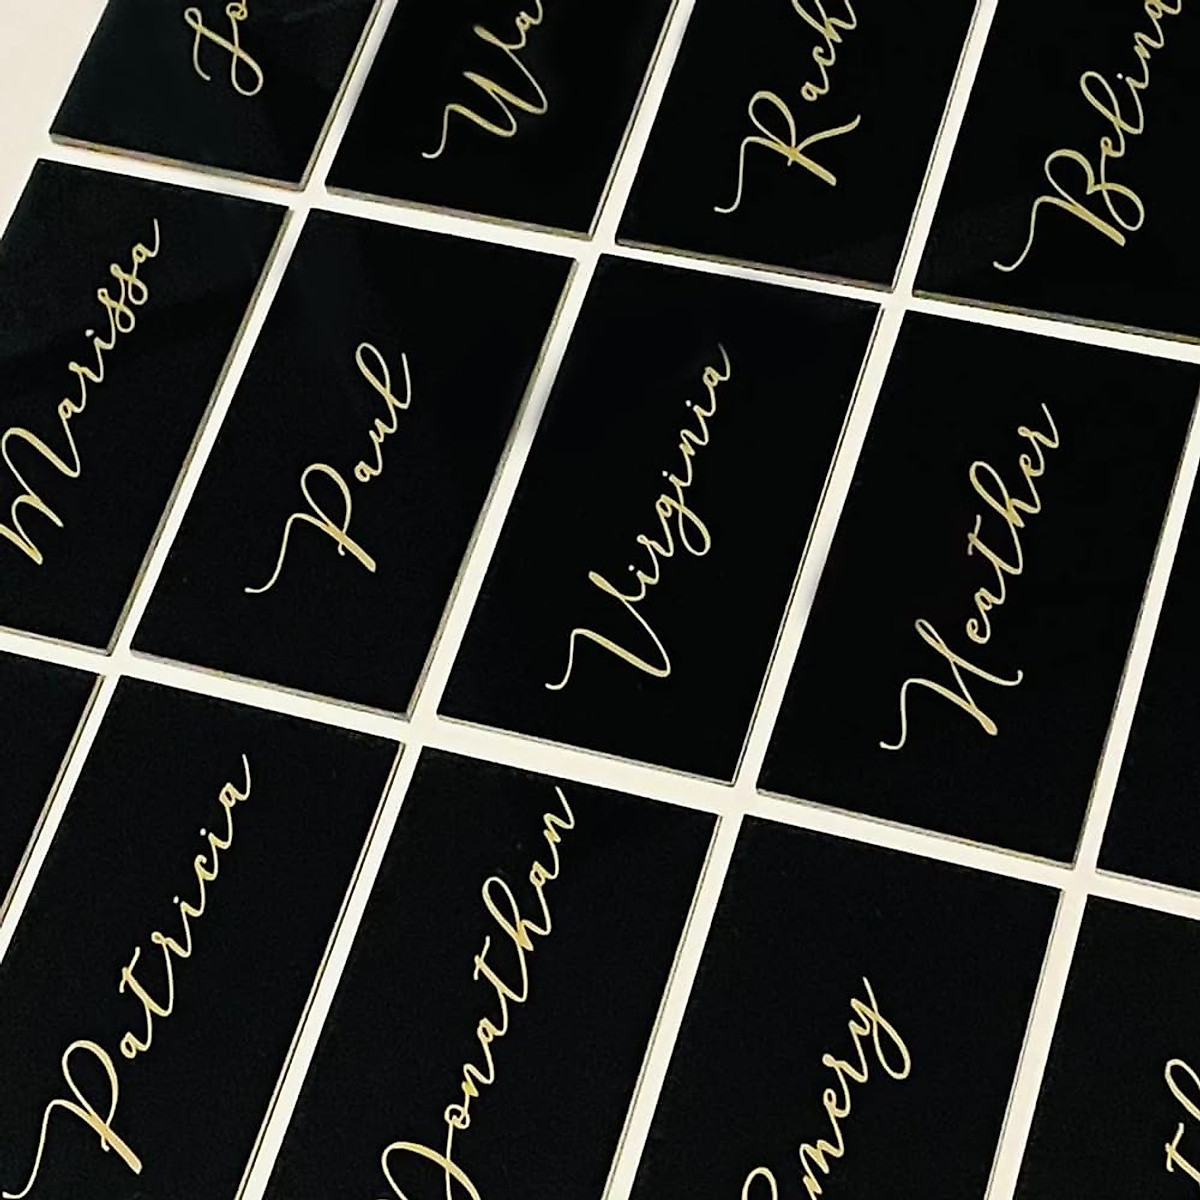 Jo
Wa
Rach
Belina
Marissa
Paul
Virginia
Heather
Patricia
Jonathan
mery
th